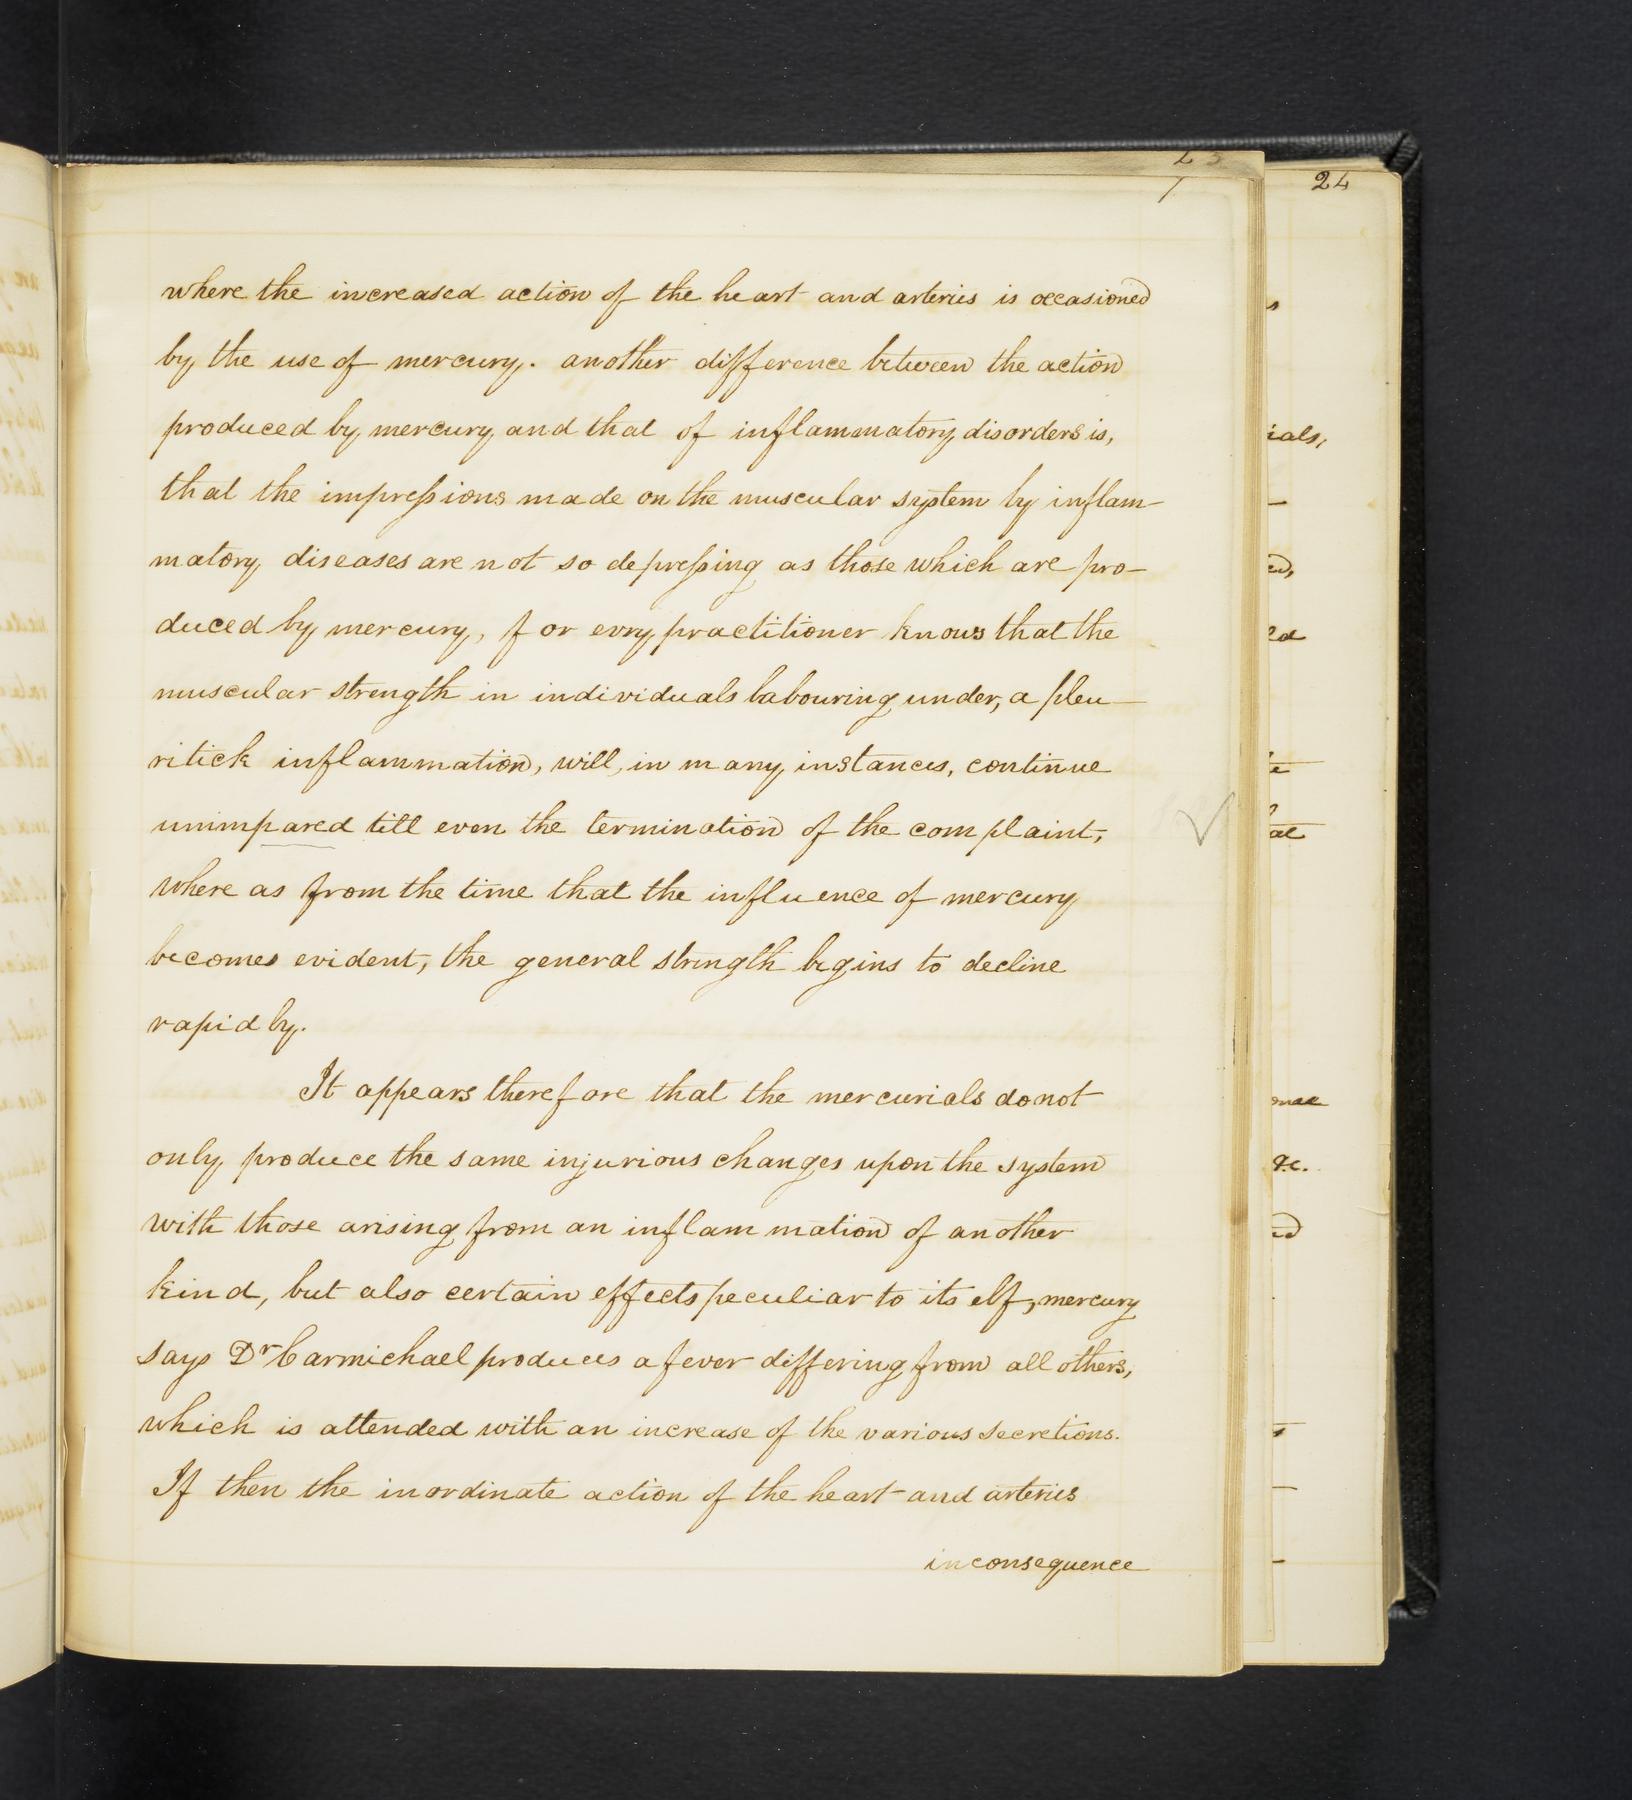 24
where the increased action of the heart and arteries is occasioned
by the use of mercury. another difference between the action
produced by mercury, and that of inflammatory disorders is,
that the impressions made on the muscular system by inflam-
matory diseases are not so depressing as those which are pro-
duced by mercury, for evry practitioner knows that the
muscular strength in individuals labouring under, a pleu-
ritick inflammation, will, in many instances, continue
unimpared till even the termination of the complaint,
where as from the time that the influence of mercury
becomes evident, the general strength begins to decline
rapidly.
It appears therefore that the mercurials do not
only produce the same injurious changes upon the system
with those arising from an inflammation of another
kind, but also certain effects peculiar to its elf, mercury
says Dr Carmichael produces a fever differing from all others,
which is attended with an increase of the various secretions.
If then the inordinate action of the heart and arteries
in consequence